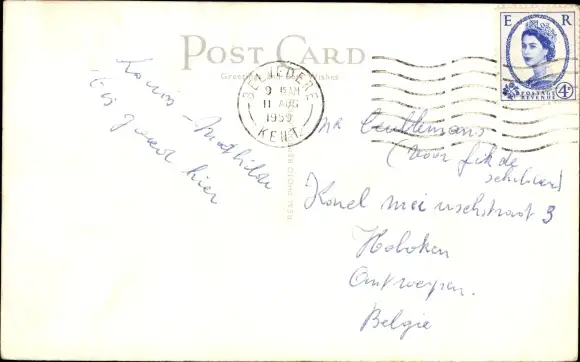 POST CARD
Greetings Wishes
E R
POSTAGE
REVENUE
4D
BELVEDERE
9 15 AM
11 AUG
1959
KENT.
REAL PHOTO
Louis - Mathilde
't is goed hier
Mr Ceulemans
(voor fik de
schilder)
Karel straat 3
Hoboken
Antwerpen.
Belgie